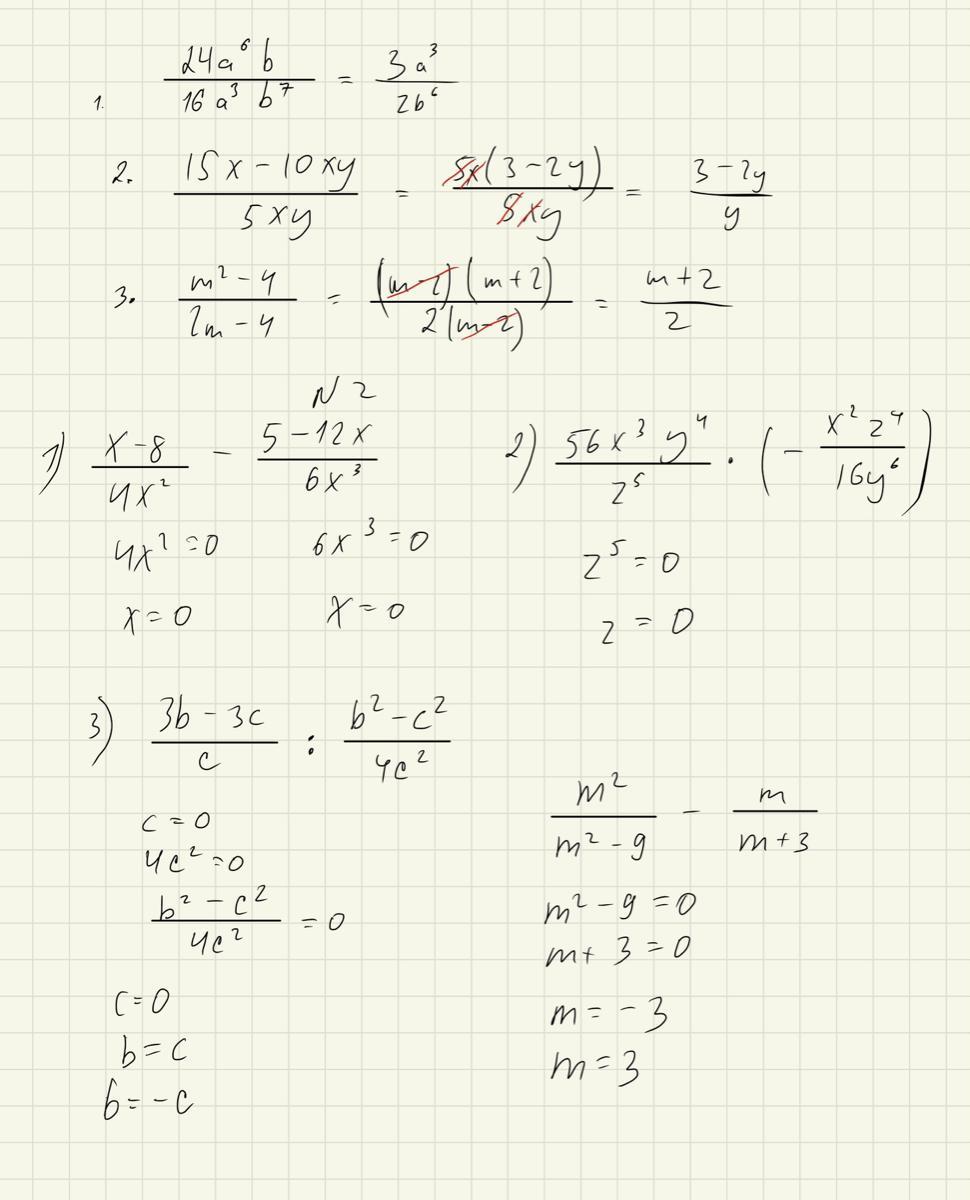 1. 24a⁶b / 16a³b⁷ = 3a³ / 2b⁶
2. 15x - 10xy / 5xy = 5x(3 - 2y) / 5xy = 3 - 2y / y
3. m² - 4 / 2m - 4 = (m - 2)(m + 2) / 2(m - 2) = m + 2 / 2
N 2
1) x - 8 / 4x² - 5 - 12x / 6x³
4x² = 0 6x³ = 0
x = 0 x = 0
2) 56x³y⁴ / z⁵ · (- x²z⁴ / 16y⁶)
z⁵ = 0
z = 0
3) 3b - 3c / c : b² - c² / 4c²
c = 0
4c² = 0
b² - c² / 4c² = 0
c = 0
b = c
b = -c
m² / m² - 9 - m / m + 3
m² - 9 = 0
m + 3 = 0
m = -3
m = 3